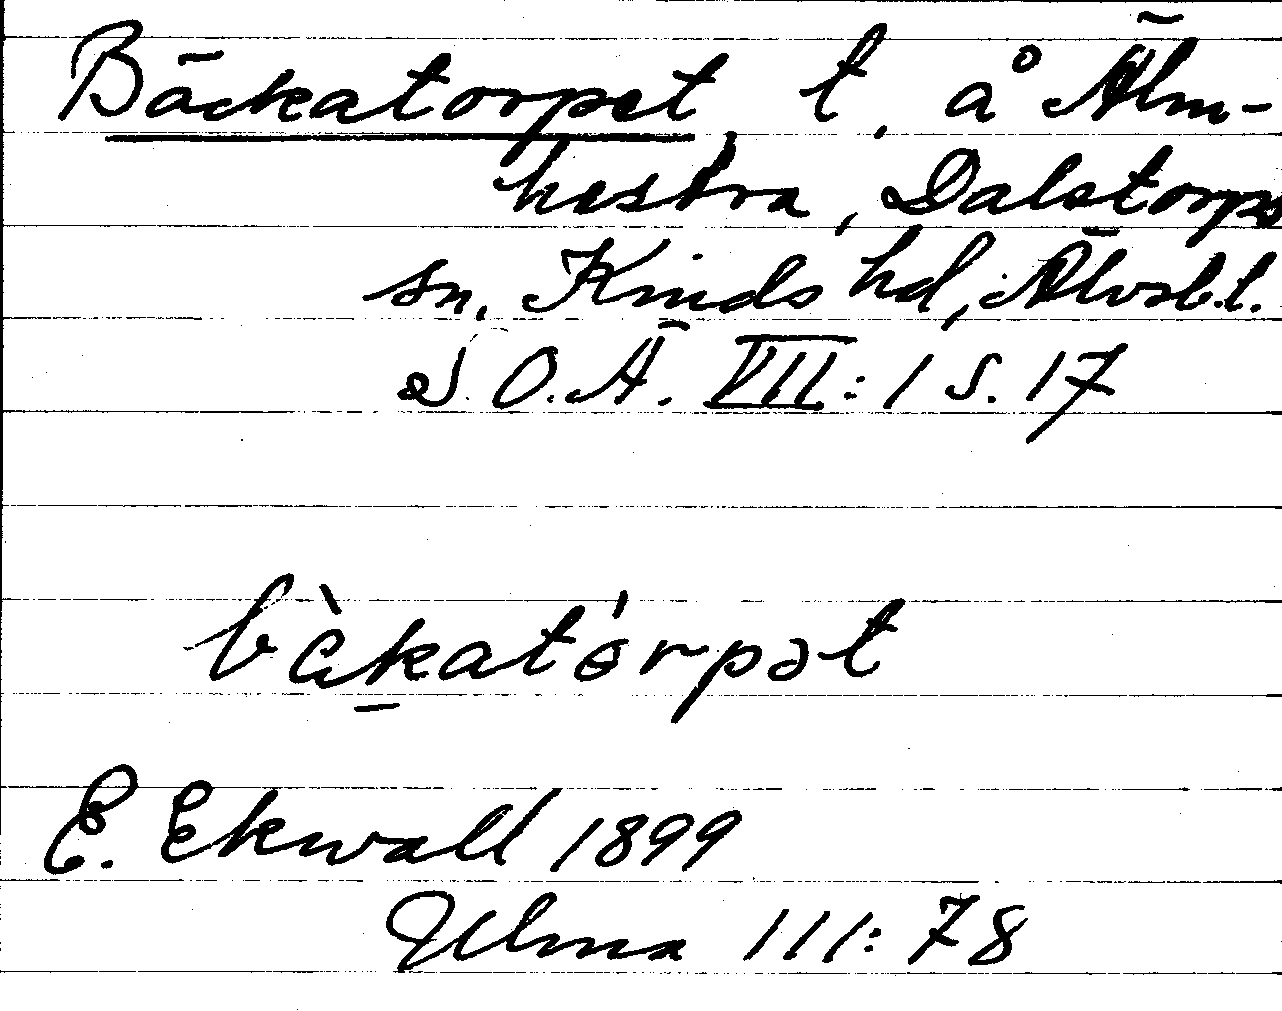 Bäckatorpet, t. å Älm-
hestra, Dalstorps
sn, Kinds hd, Älvsb. l.
S.O.Ä. VII: 1 S. 17
bàkatórpət
E. Ekwall 1899
Ulma 111: 78